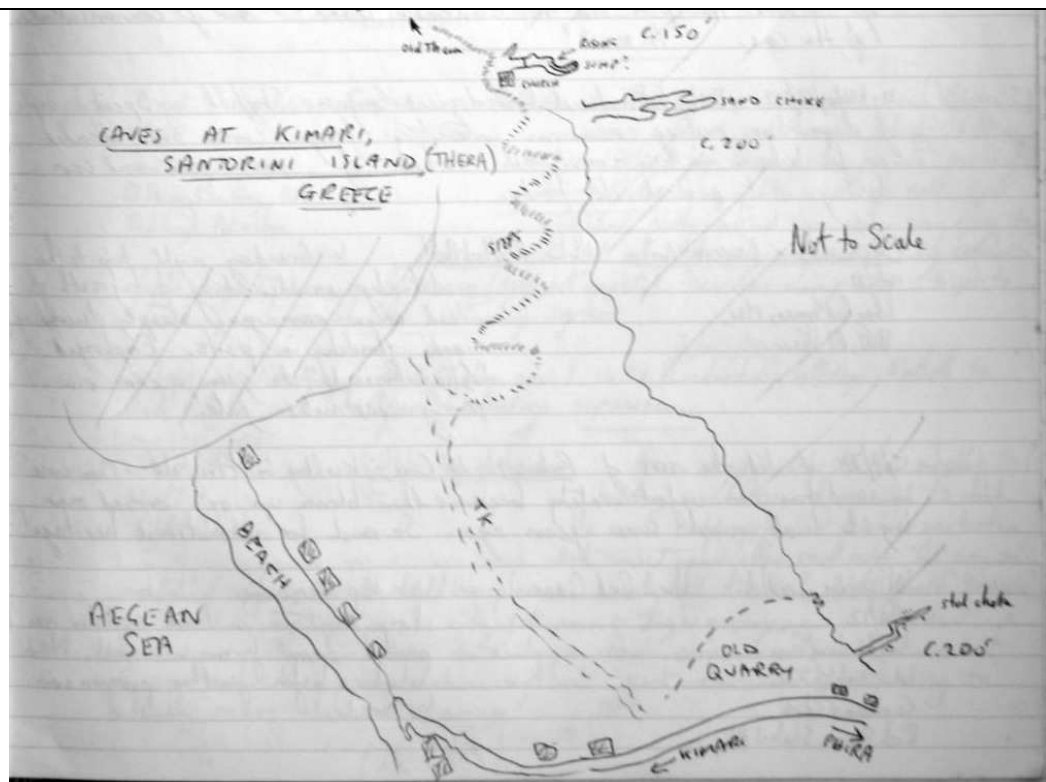 C. 150'
RISING
SUMP?
Old Thera
CHURCH
SAND CHOKE
C. 200'
CAVES AT KIMARI,
SANTORINI ISLAND (THERA)
GREECE
STEPS
Not to Scale
TK
BEACH
AEGEAN
SEA
stal choke
C. 200'
OLD
QUARRY
KIMARI
PHIRA